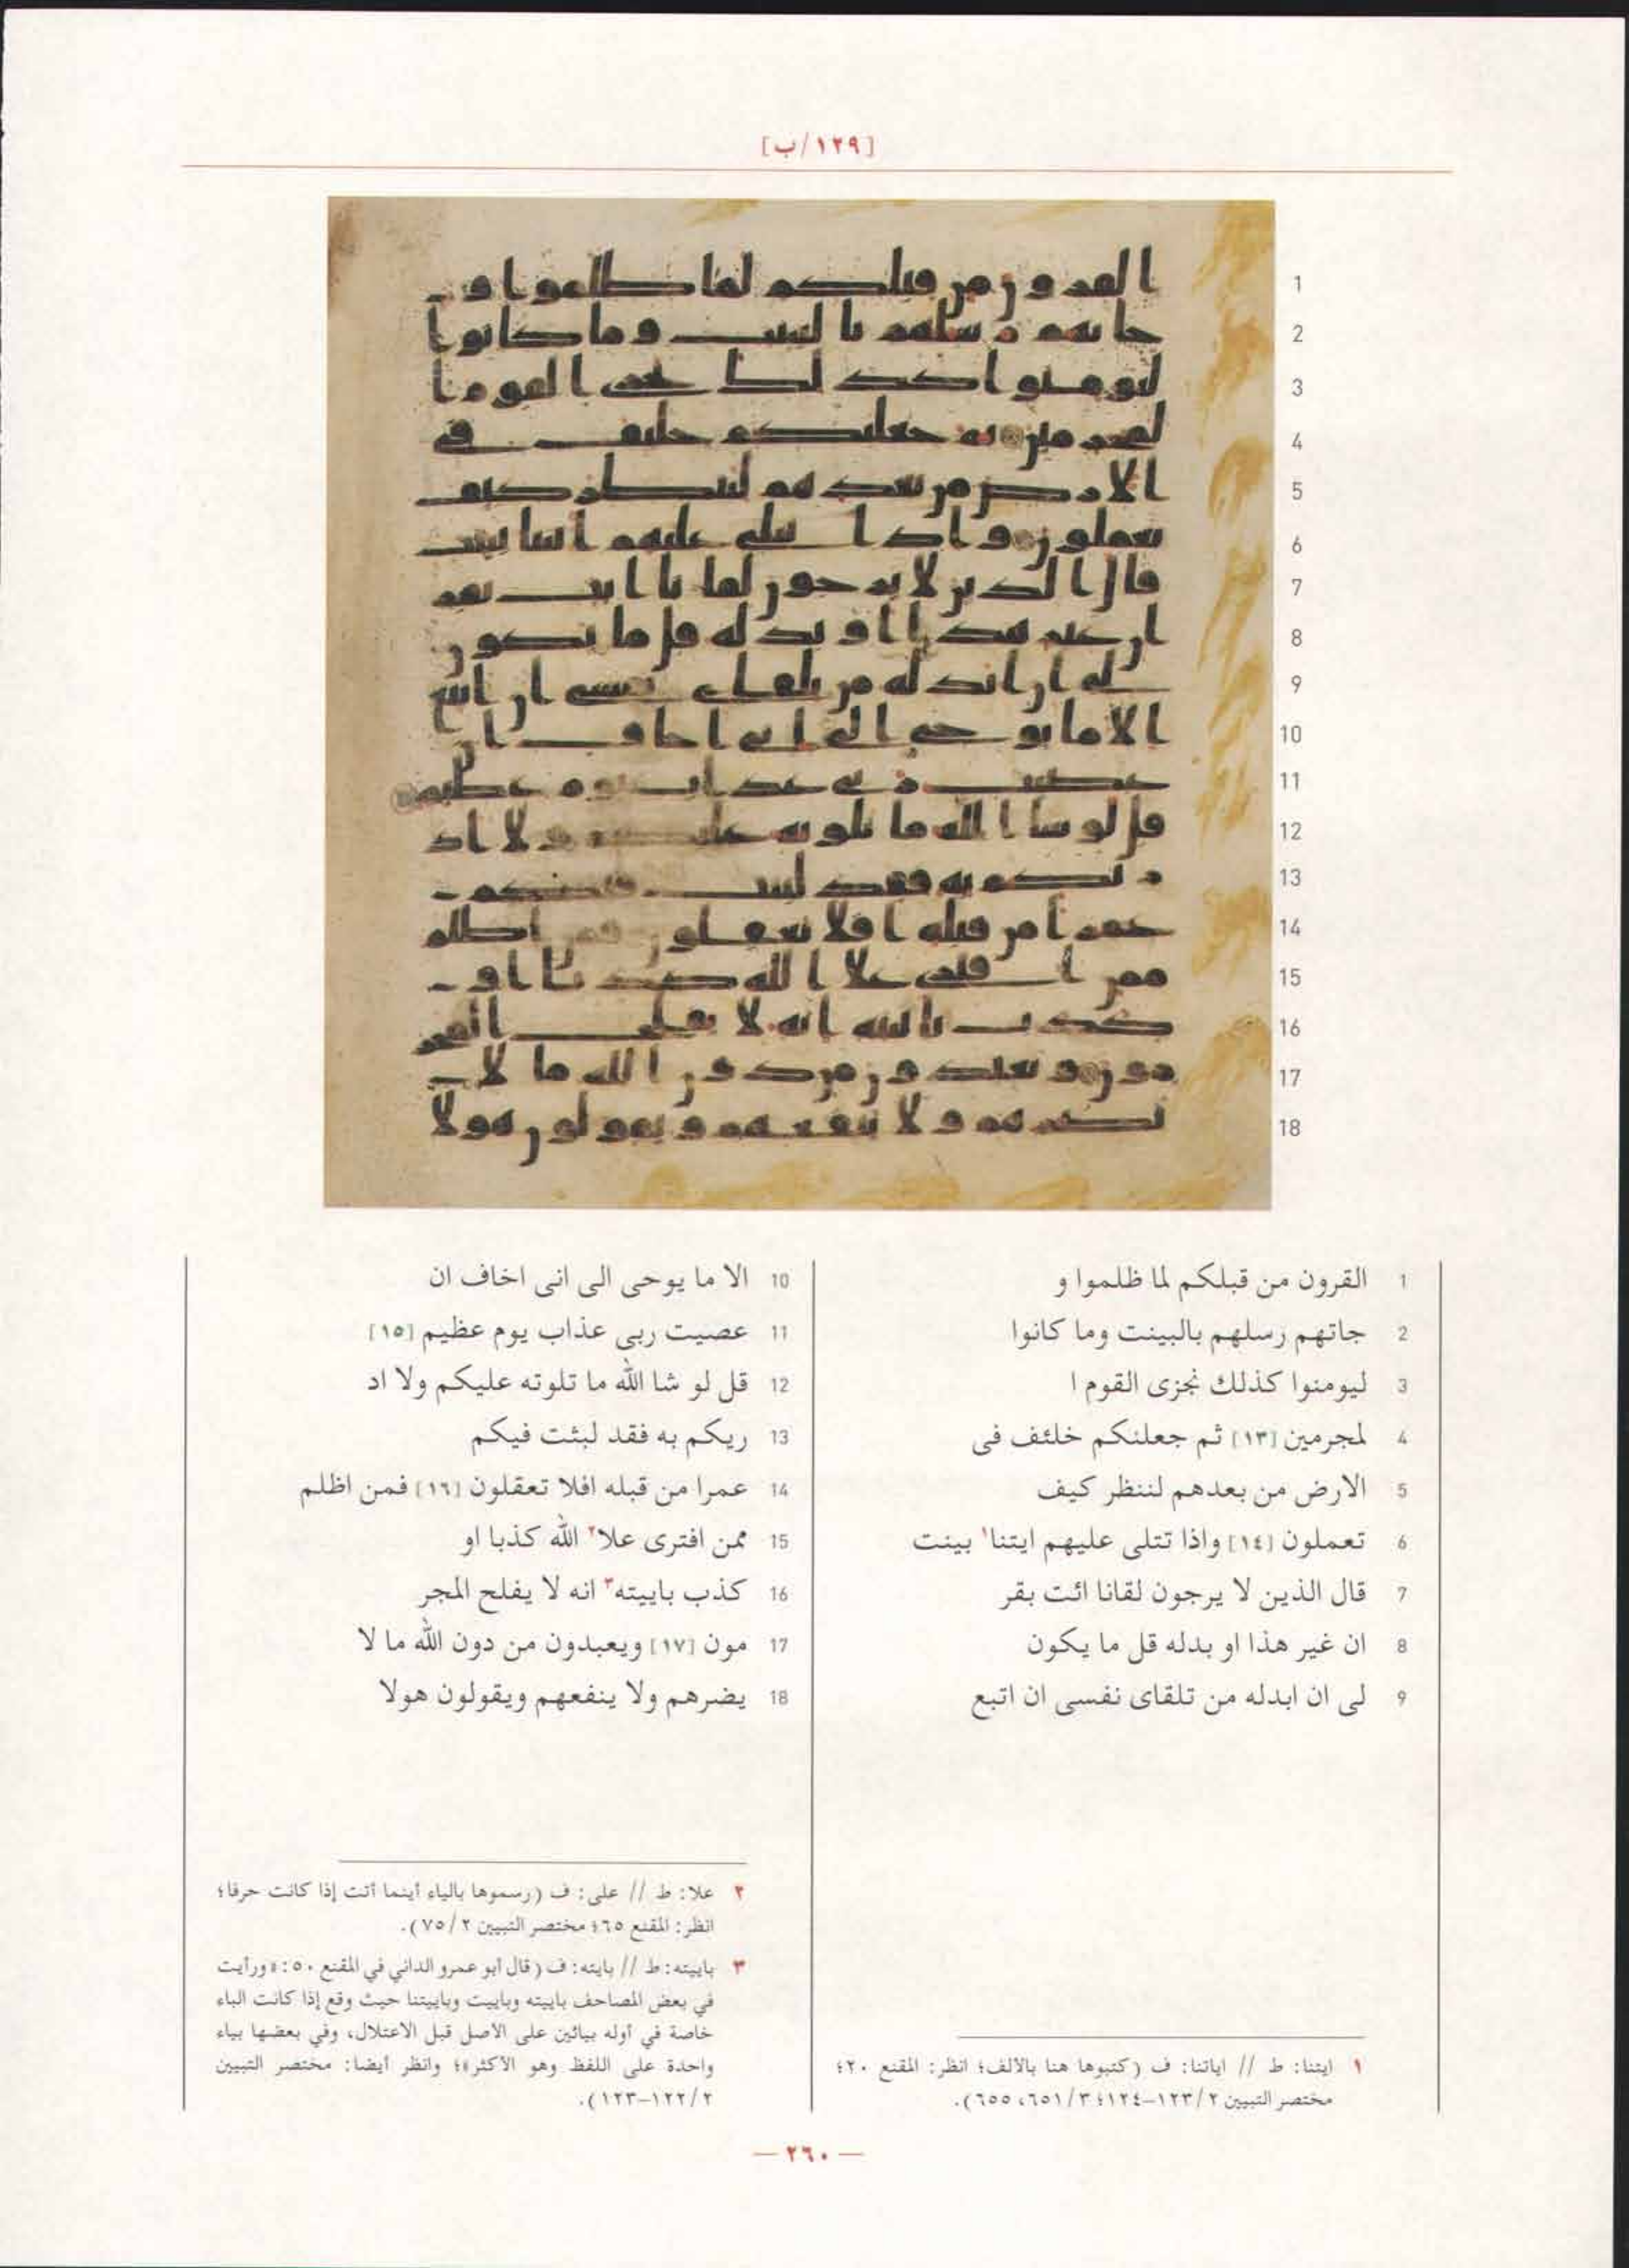 [١٢٩/ب]
1
2
3
4
5
6
7
8
9
10
11
12
13
14
15
16
17
18
1 القرون من قبلكم لما ظلموا و
2 جاتهم رسلهم بالبينت وما كانوا
3 ليومنوا كذلك نجزى القوم ا
4 لمجرمين [١٣] ثم جعلنكم خلئف فى
5 الارض من بعدهم لننظر كيف
6 تعملون [١٤] واذا تتلى عليهم ايتنا١ بينت
7 قال الذين لا يرجون لقانا ائت بقر
8 ان غير هذا او بدله قل ما يكون
9 لى ان ابدله من تلقاى نفسى ان اتبع
10 الا ما يوحى الى انى اخاف ان
11 عصيت ربى عذاب يوم عظيم [١٥]
12 قل لو شا الله ما تلوته عليكم ولا اد
13 ريكم به فقد لبثت فيكم
14 عمرا من قبله افلا تعقلون [١٦] فمن اظلم
15 ممن افترى علا٢ الله كذبا او
16 كذب باييته٣ انه لا يفلح المجر
17 مون [١٧] ويعبدون من دون الله ما لا
18 يضرهم ولا ينفعهم ويقولون هولا
١ ايتنا: ط // اياتنا: ف (كتبوها هنا بالألف؛ انظر: المقنع ٢٠؛
مختصر التبيين ٢/ ١٢٣–١٢٤؛ ٣/ ٦٥١، ٦٥٥).
٢ علا: ط // على: ف (رسموها بالياء أينما أتت إذا كانت حرفا؛
انظر: المقنع ٦٥؛ مختصر التبيين ٢/ ٧٥).
٣ باييته: ط // بايته: ف (قال أبو عمرو الداني في المقنع ٥٠: «ورأيت
في بعض المصاحف باييته وباييت وباييتنا حيث وقع إذا كانت الباء
خاصة في أوله بيائين على الأصل قبل الاعتلال، وفي بعضها بياء
واحدة على اللفظ وهو الأكثر»؛ وانظر أيضا: مختصر التبيين
٢/ ١٢٢–١٢٣).
— ٢٦٠ —